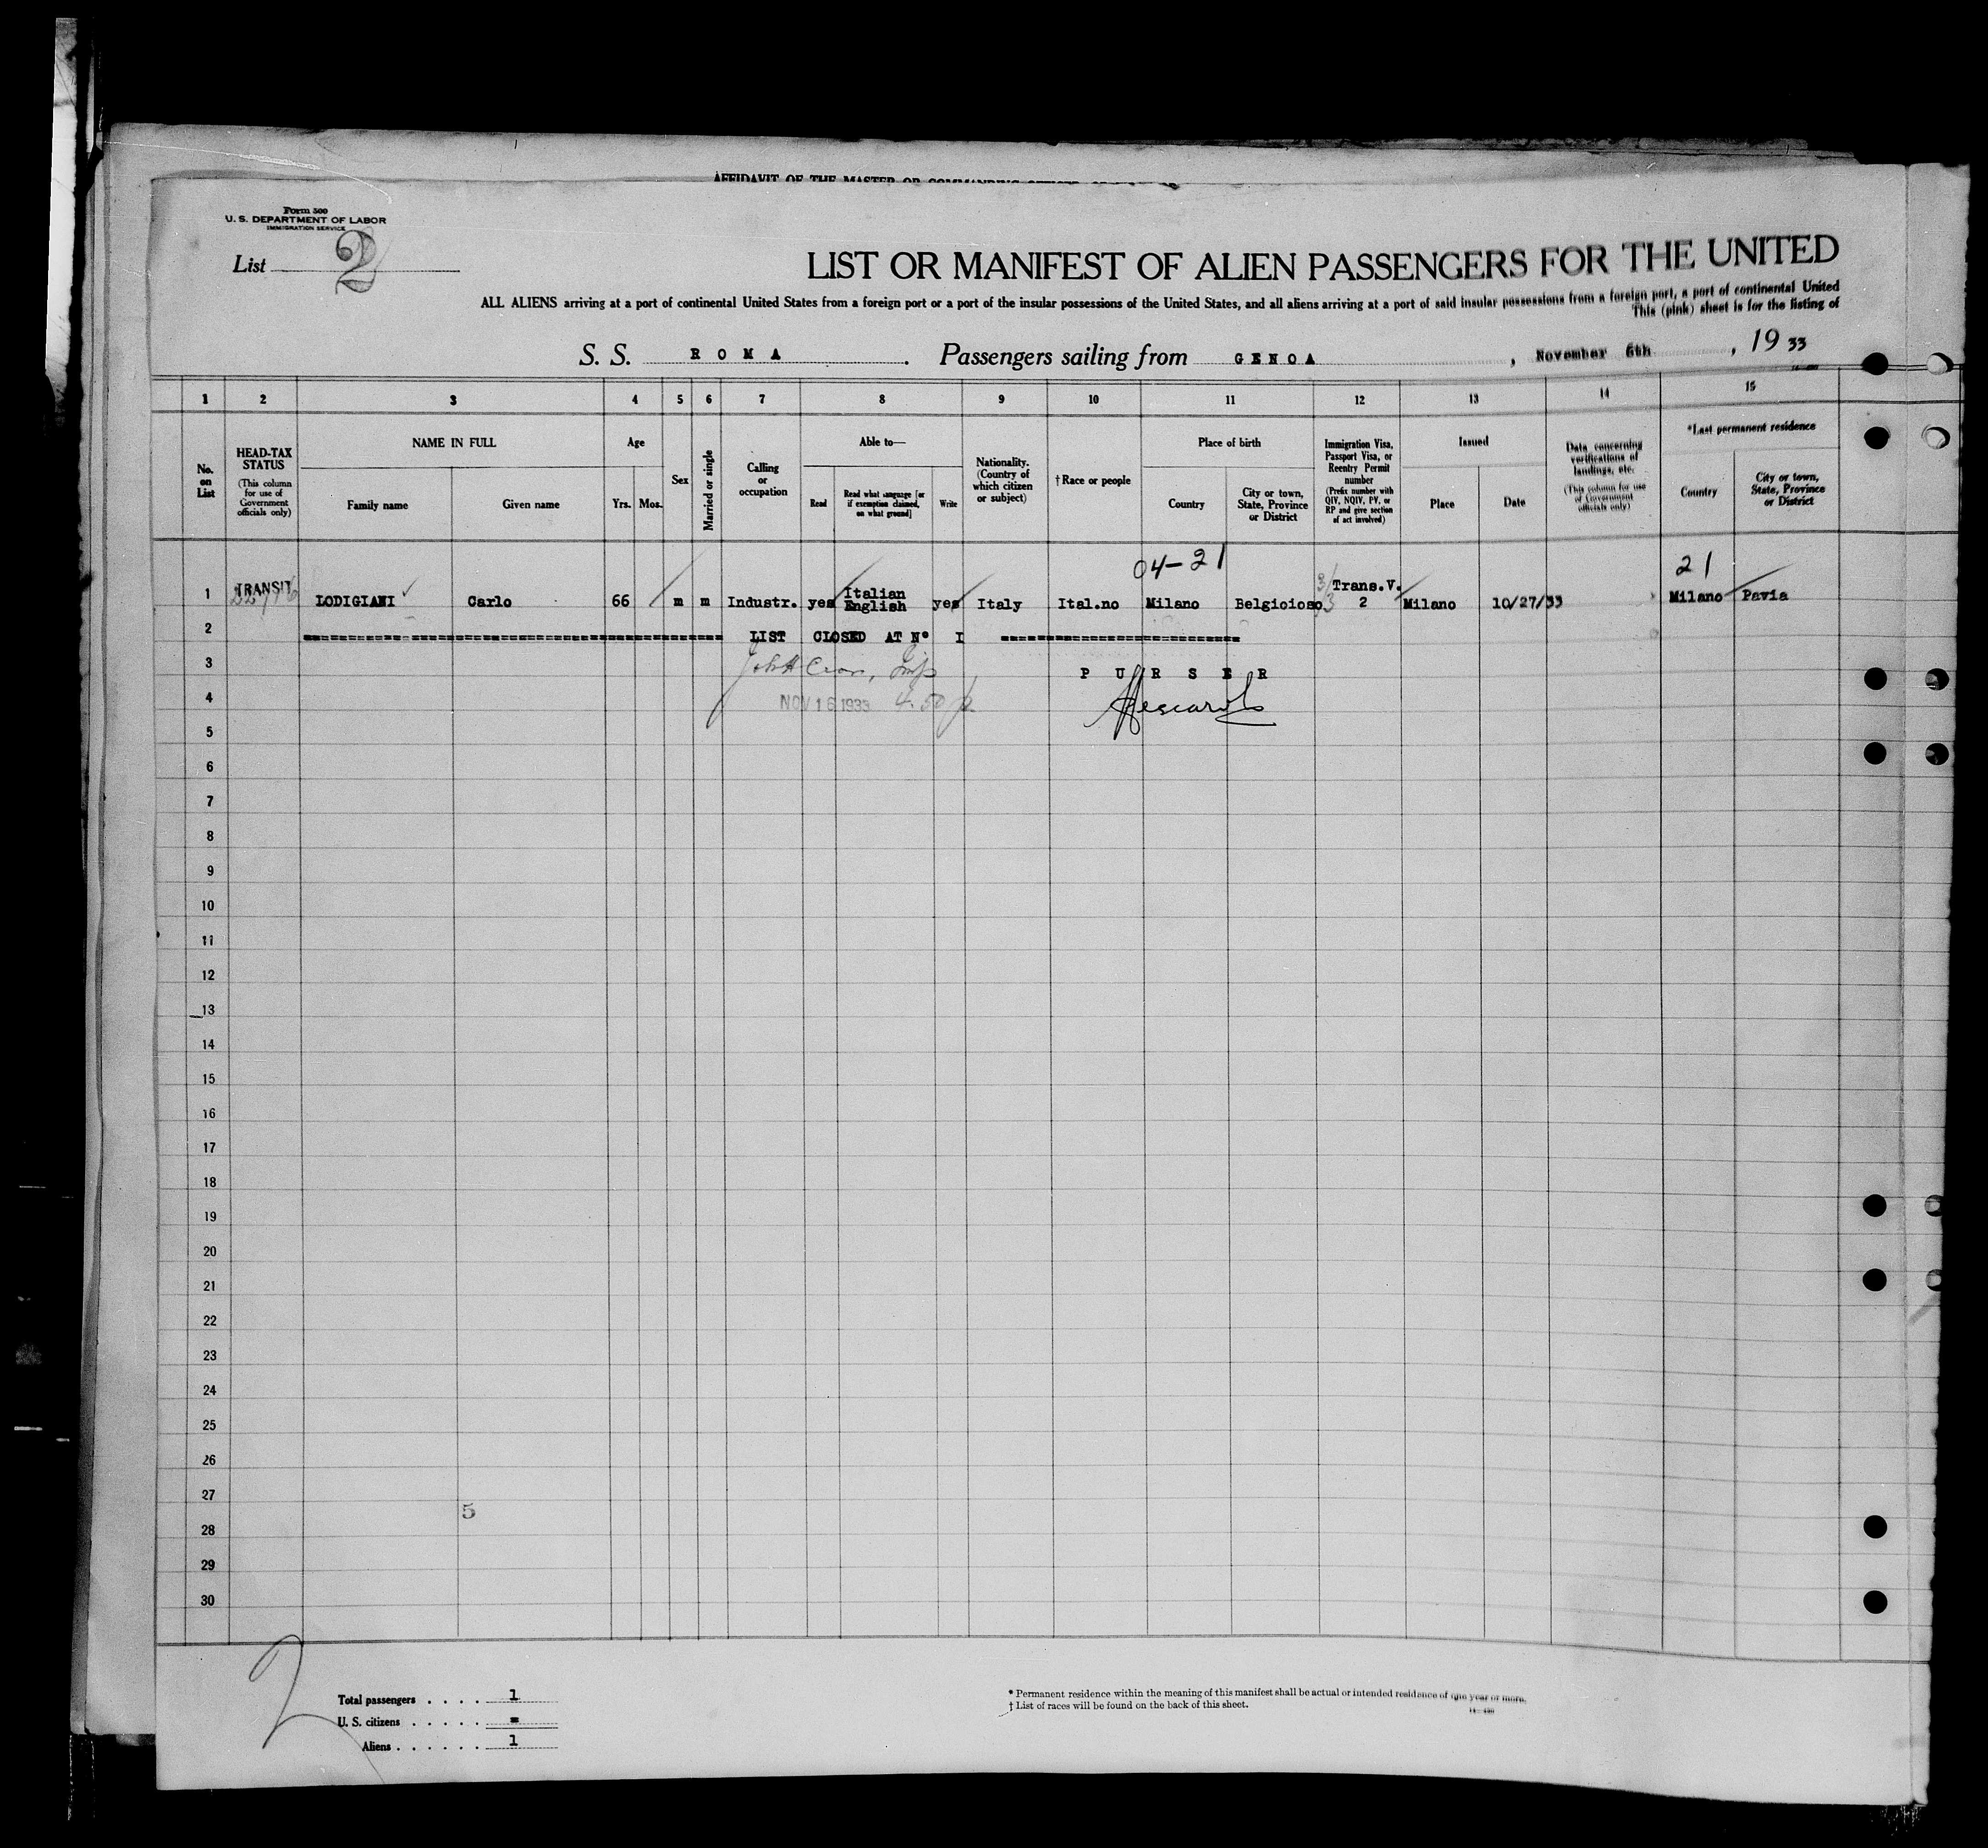 AFFIDAVIT OF THE MASTER OR COMMANDING OFFICER
Form 500
U. S. DEPARTMENT OF LABOR
IMMIGRATION SERVICE
List 2
LIST OR MANIFEST OF ALIEN PASSENGERS FOR THE UNITED
ALL ALIENS arriving at a port of continental United States from a foreign port or a port of the insular possessions of the United States, and all aliens arriving at a port of said insular possessions from a foreign port, a port of continental United
This (pink) sheet is for the listing of
S. S. ROMA. Passengers sailing from GENOA, November 6th, 1933
1 2 3 4 5 6 7 8 9 10 11 12 13 14 15
No. on List
HEAD-TAX STATUS (This column for use of Government officials only)
NAME IN FULL
Family name
Given name
Age
Yrs.
Mos.
Sex
Married or single
Calling or occupation
Able to—
Read
Read what language [or if exemption claimed, on what ground]
Write
Nationality. (Country of which citizen or subject)
†Race or people
Place of birth
Country
City or town, State, Province or District
Immigration Visa, Passport Visa, or Reentry Permit number (Prefix number with QIV, NQIV, PV, or RP and give section of act involved)
Issued
Place
Date
Data concerning verifications of landings, etc. (This column for use of Government officials only)
*Last permanent residence
Country
City or town, State, Province or District
04-21
21
1 TRANSIT LODIGIANI Carlo 66 m m Industr. yes Italian English yes Italy Ital.no Milano Belgioioso Trans.V. 2 Milano 10/27/33 Milano Pavia
2 LIST CLOSED AT N° I
3 PURSER
4 NOV 16 1933 4.50 p.
5
6
7
8
9
10
11
12
13
14
15
16
17
18
19
20
21
22
23
24
25
26
27
5
28
29
30
2
Total passengers . . . . 1
U. S. citizens . . . . . =
Aliens . . . . . . 1
* Permanent residence within the meaning of this manifest shall be actual or intended residence of one year or more.
† List of races will be found on the back of this sheet.